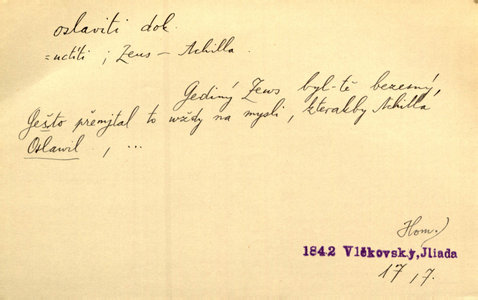 oslaviti dok.
= uctíti ; Zeus – Achilla.
Gediný Zews byl-tě bezesný,
Gešto přemjtal to wždy na mysli, kterakby Achilla
Oslawil , ...
Hom.)
1842 Vlčkovský, Jliada
17, 7.